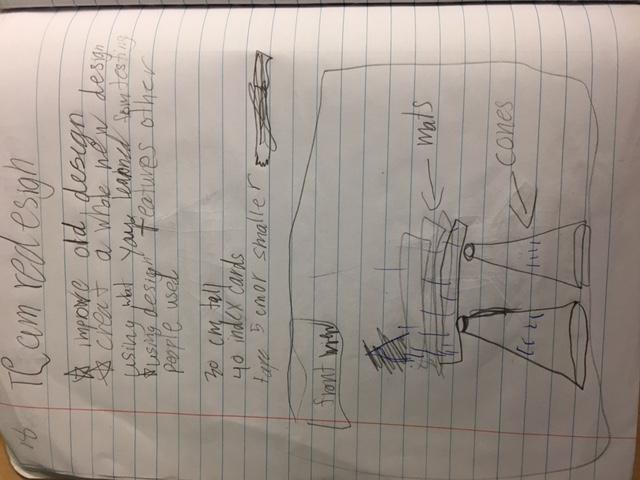 Team redesign
☆ improve old design
☆ creat a whole new design
using what your learned som testing
☆ using design features other
people used
30 cm tall
40 index cards
tape 5 cm or smaller
front view
mats
cones